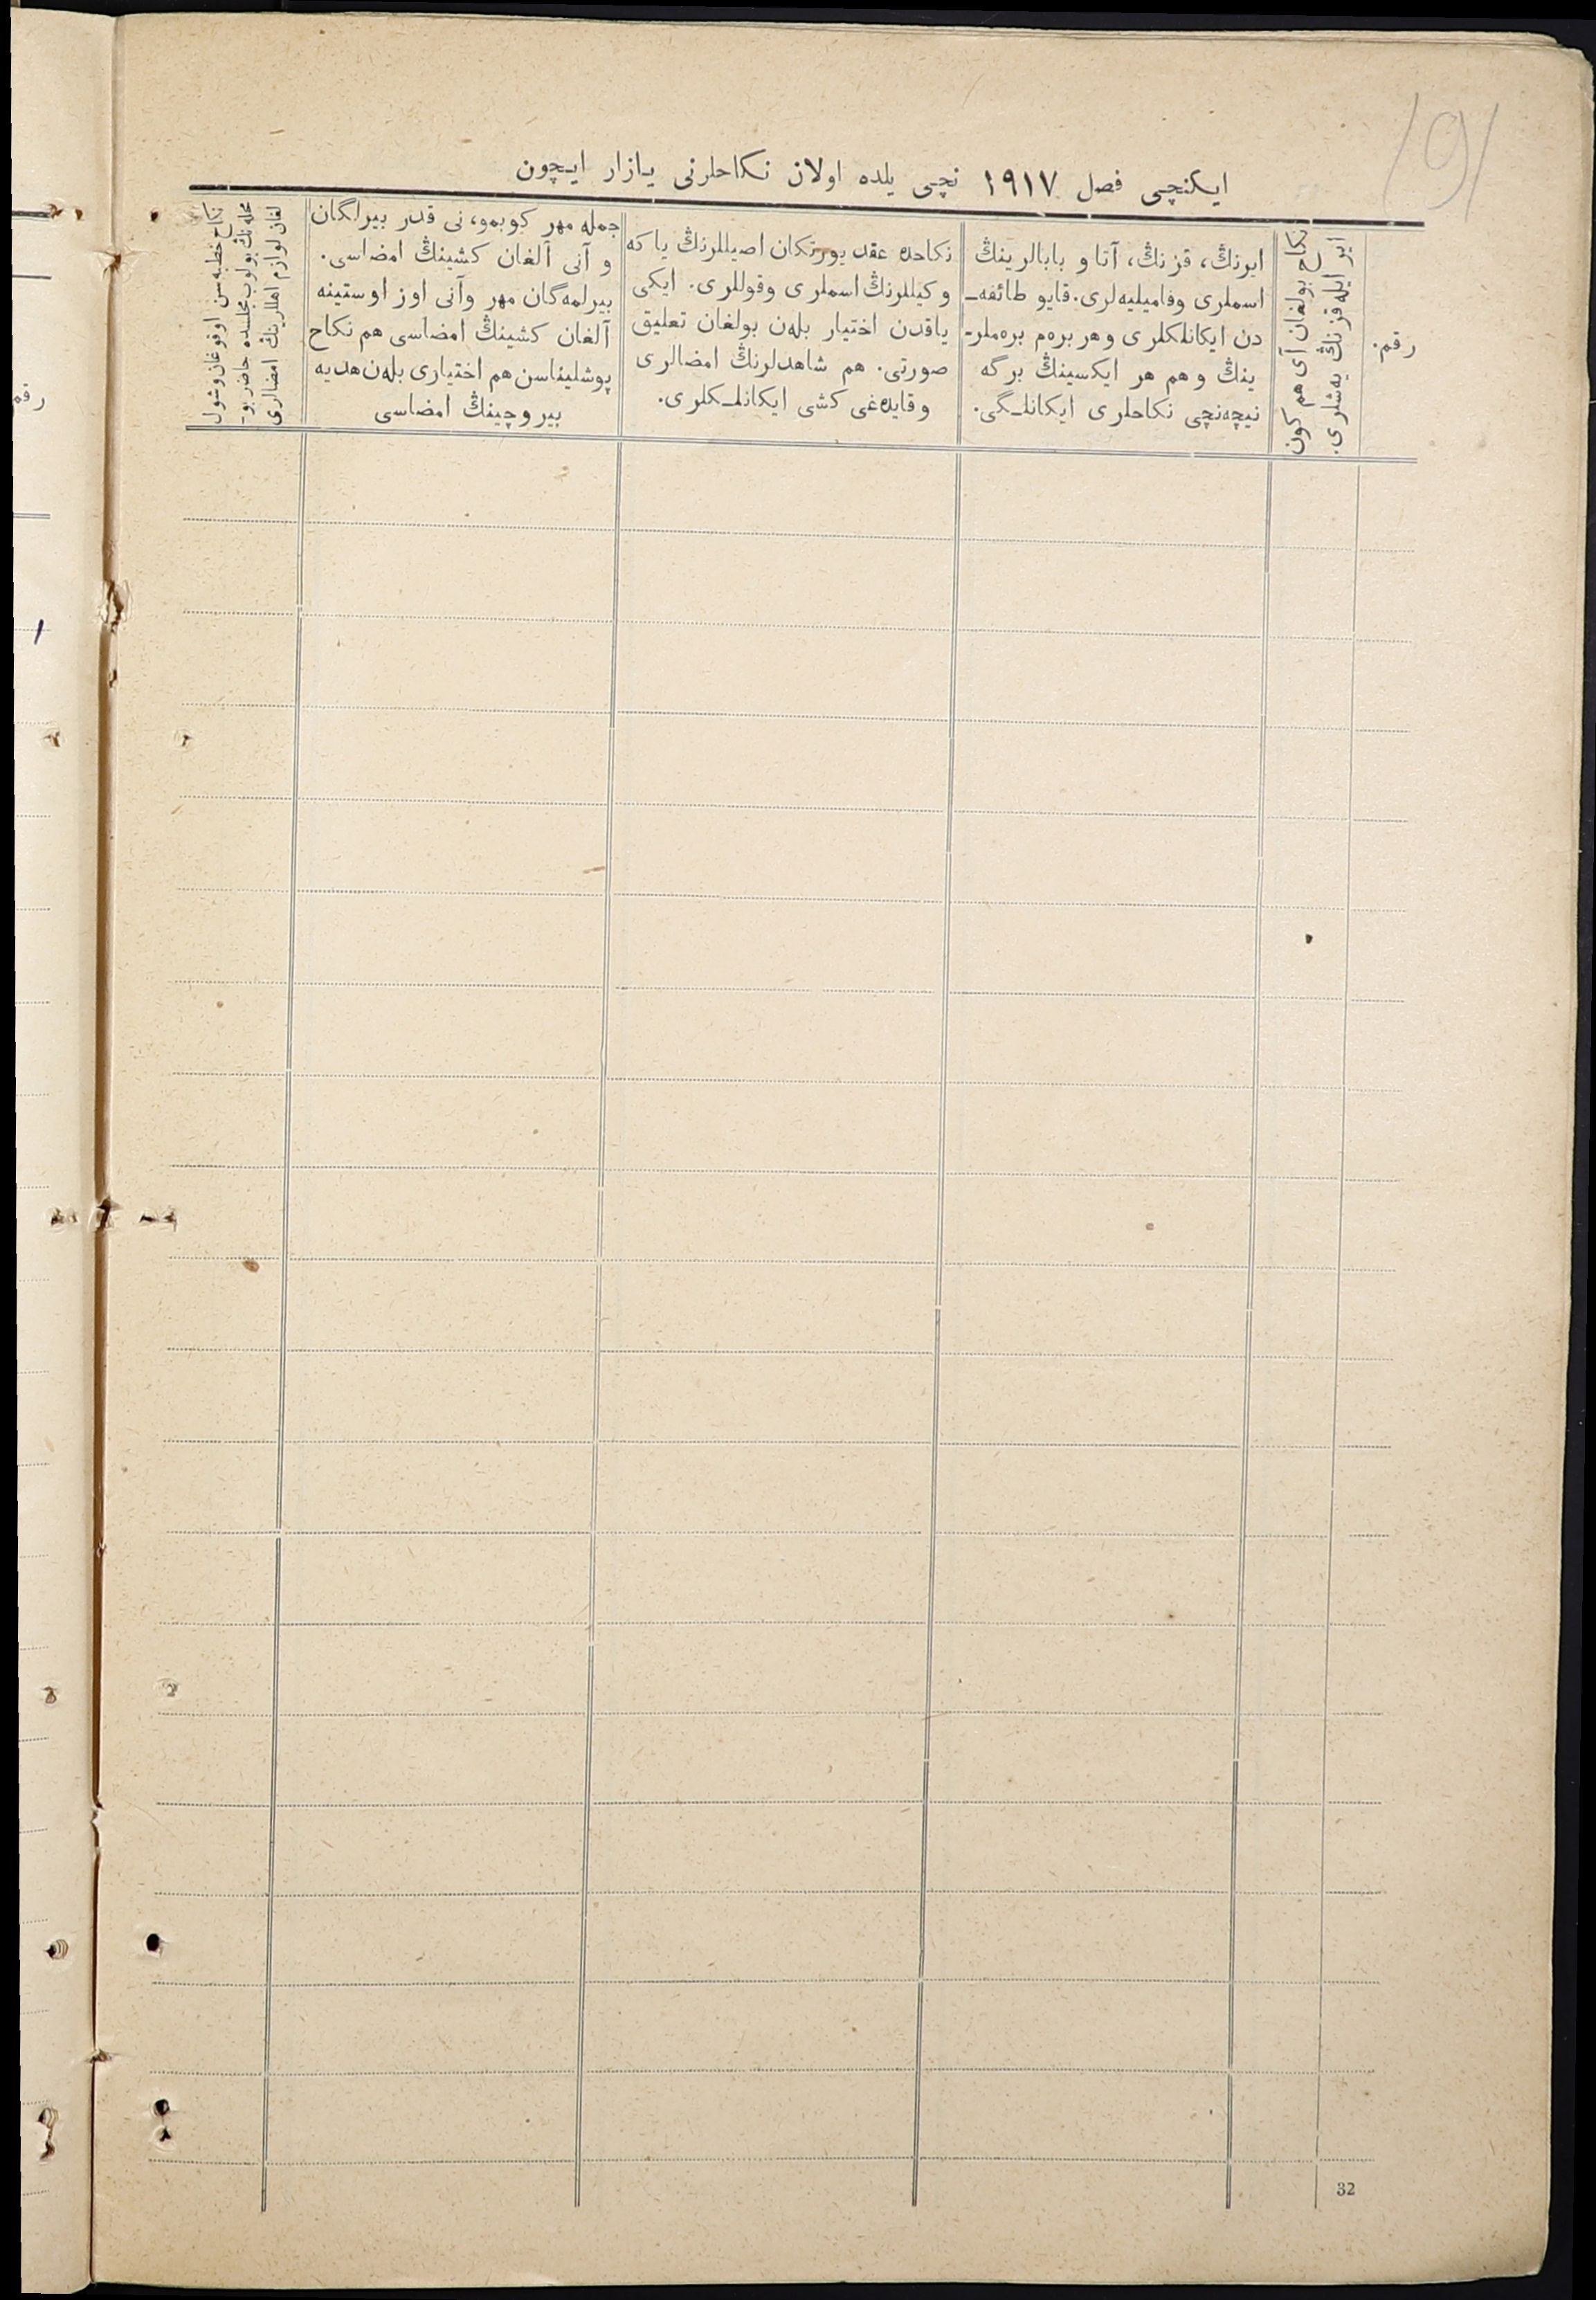 191
ایکنچی فصل ١٩١٧ نچی یلده اولان نکاحلرنی یازار ایچون
رقم.
نکاح بولغان آی هم کون
ایر ایله قزنڭ یه‌شلری.
ایرنڭ، قزنڭ، آتا و بابالرینڭ
اسملری وفامیلیه‌لری. قایو طائفه‌ـ
دن ایکانلکلری وهر بره‌م بره‌ملر-
ینڭ وهم هر ایکسینڭ برگه
نیچه‌نچی نکاحلری ایکانلـگی.
نکاحده عقد یورتکان اصیللرنڭ یا که
وکیللرنڭ اسملری وقوللری. ایکی
یاقدن اختیار بله‌ن بولغان تعلیق
صورتی. هم شاهدلرنڭ امضالری
وقایده‌غی کشی ایکانلـکلری.
جمله مهر کوبمو، نی قدر بیرلگان
و آنی آلغان کشینڭ امضاسی.
بیرلمه‌گان مهر وآنی اوز اوستینه
آلغان کشینڭ امضاسی هم نکاح
پوشلیناسن هم اختیاری بله‌ن هدیه
بیروچینڭ امضاسی
نکاح خطبه‌سن اوقوغان وشول
محله‌نڭ بولوب مجلسده حاضر بو-
لغان لوازم اهللارینڭ امضالری
رقم
١
32